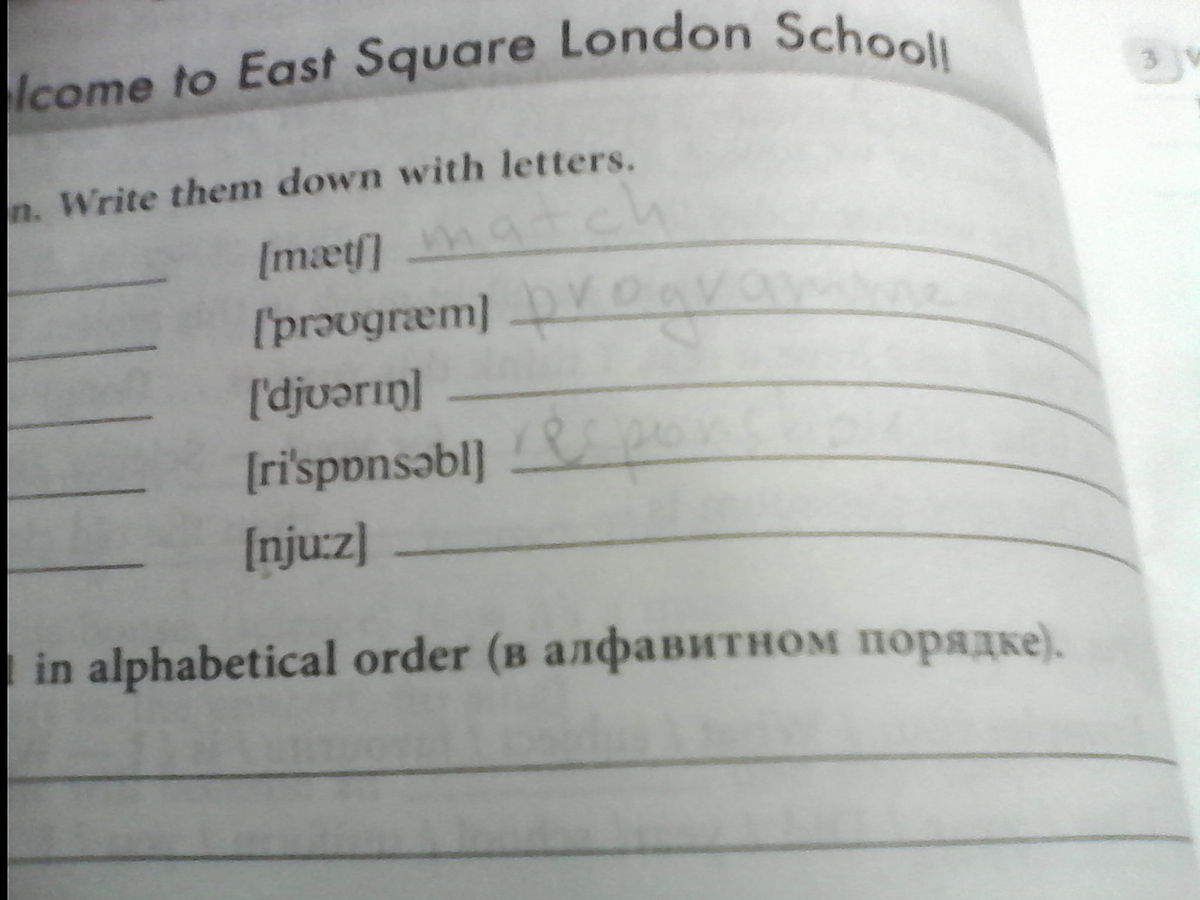 lcome to East Square London School!
3
n. Write them down with letters.
[mætʃ] match
[ˈprəʊgræm] programme
[ˈdjʊərɪŋ]
[riˈspɒnsəbl]
[njuːz]
in alphabetical order (в алфавитном порядке).